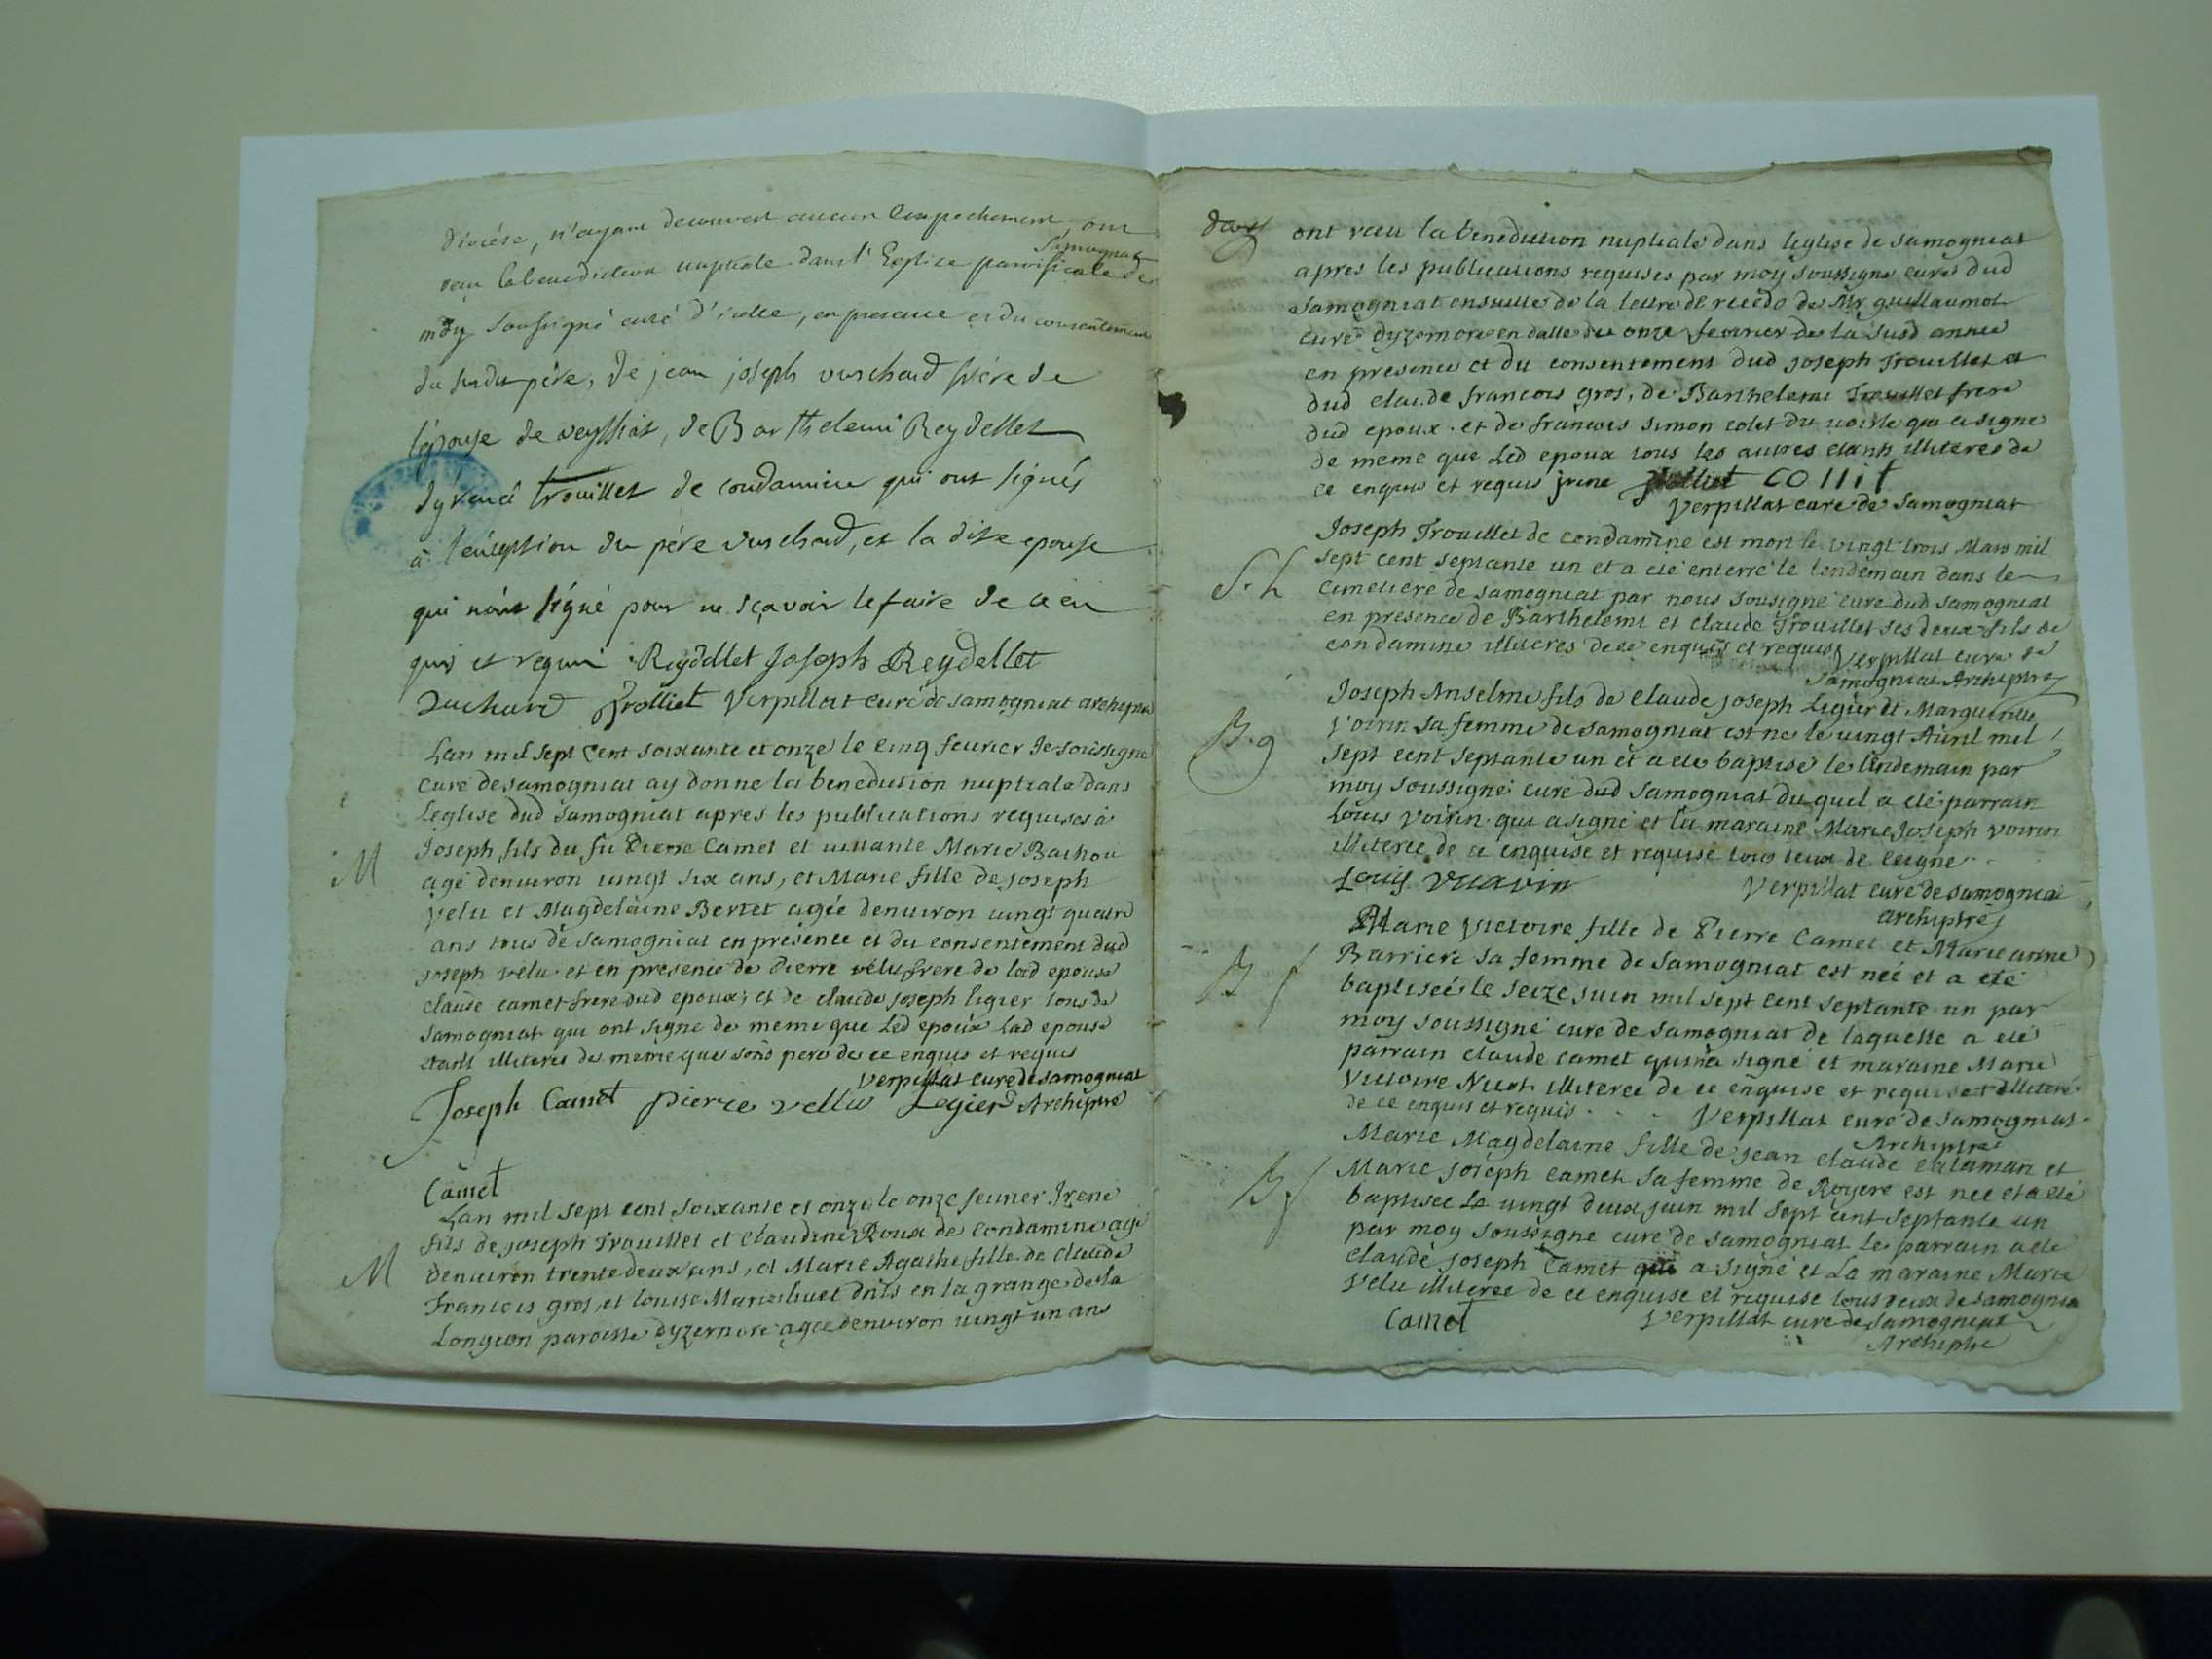 diocése, n'ayant decouvert aucun Empechement, ont
reçu la benediction nuptiale dans l'Eglise parroissiale de
Samogniat
moy soussigné curé d'icelle, en presence et du consentement
du susdit pére, de jean joseph vuschard frére de
l'épouse de veyssiat, de Barthelemi Reydellet
d'yrené trouillet de condamine qui ont signés
à l'exception du pére vuschard, et la dite epouse
qui n'ont signé pour ne sçavoir le faire de ce en
quis et requis Reydellet Joseph Reydellet
Vuchard trolliet Verpillat curé de samogniat archiptre
Lan mil sept cent soixante et onze le cinq feurier Je soussigne
cure de samogniat ay donne la benediction nuptiale dans
Leglise dud Samogniat apres les publications requises à
M
Joseph fils du fu Pierre Camet et uiuante Marie Bachou
agé denuiron uingt six ans, et Marie fille de joseph
velu et Magdelaine Bertet agée denuiron uingt quatre
ans tous de samogniat en presence et du consentement dud
joseph velu et en presence de Pierre vélu frere de lad epouse
claude camet frere dud epoux, et de claude joseph ligier tous de
samogniat qui ont signe de meme que Led epoux lad epouse
etant illiteres de meme que sond pere de ce enquis et requis
Verpillat cure de samogniat
Joseph Camet pierre vellu Legier Archiptre
Camet
Lan mil sept cent soixante et onze le onze feurier Irene
fils de joseph Trouillet et claudine Roux de condamine agé
M
denuiron trente deux ans, et Marie Agathe fille de claude
Francois gros, et louise Marie huet dits en la grange de la
Longeon paroisse dyzernore agée denuiron uingt un ans
ont recu la benediction nuptiale dans leglise de samogniat
apres les publications requises par moy soussigne cure dud
Samogniat ensuitte de la lettre de recedo de Mr guillaumot
cure dyzernore en datte du onze feurier de la susd annee
en presence et du consentement dud joseph Trouillet et
dud claude francois gros, de Barthelemi Trouillet frere
dud epoux et de francois simon colet du uoirle qui a signe
de meme que Led epoux tous les autres etants illiteres de
ce enquis et requis jrene trolliet collit
Verpillat cure de Samogniat
Joseph Trouillet de condamine est mort le vingt trois Mars mil
sept cent septante un et a eté enterré le lendemain dans le
S. h
cimetiere de samogniat par nous sousigne cure dud samogniat
en presence de Barthelemi et claude Trouillet ses deux fils de
condamine illiteres de ce enquis et requis Verpillat cure de
Samogniat Archiptre
Joseph Anselme fils de claude joseph Legier et Margueritte
B. g
Voirin sa femme de samogniat est né le uingt Auril mil
sept cent septante un et a ete baptisé le lendemain par
moy soussigné cure dud samogniat duquel a eté parrain
Louis voirin qui a signé et la maraine Marie Joseph voirin
illiteree de ce enquise et requise tous deux de
Louis vuavin Verpillat curé de samogniat
archiptre
Marie Victoire fille de Pierre Camet et Marie anne
B f
Barriere sa femme de Samogniat est neé et a eté
baptiseé le seize juin mil sept cent septante un par
moy soussigné cure de samogniat de laquelle a eté
parrain claude camet qui n'a signé et maraine Marie
Victoire Nuet illiteree de ce enquise et requise illiteré
de ce enquis et requis Verpillat curé de samogniat
Archiptre
Marie Magdelaine fille de jean claude et
B f
Marie joseph camet sa femme de Royere est née et a eté
baptisee Le uingt deux juin mil sept cent septante un
par moy soussigne cure de samogniat le parrain a eté
claude joseph Camet qui a signé et La maraine Marie
velu illiteree de ce enquise et requise tous deux de samogniat
Camet Verpillat cure de samogniat
Archiptre